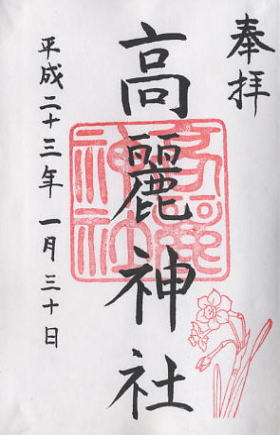 奉拝
高麗神社
平成二十三年一月三十日